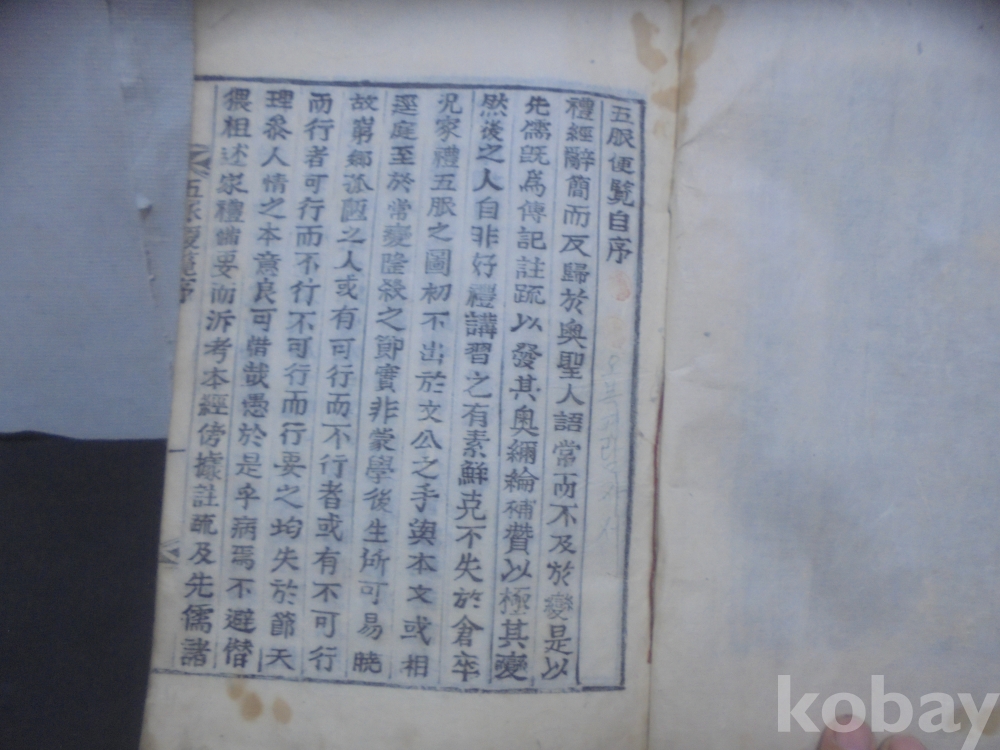 五脤便覽自序
禮經辭簡而反歸於奧聖人語常而不及於變是以
先儒旣爲傳記註疏以發其奧彌綸補賛以極其變
然後之人自非好禮講習之有素鮮克不失於倉卒
况家禮五脤之圖初不出於文公之手與本文或相
逕庭至於常變隆殺之節實非蒙學後生所可易曉
故窮鄉孤陋之人或有可行而不行者或有不可行
而行者可行而不行不可行而行要之均失於節天
理叅人情之本意良可惜哉愚於是乎病焉不避僭
猥祖述家禮備要而泝考本經傍據註疏及先儒諸
五脤便覽序
一
kobay